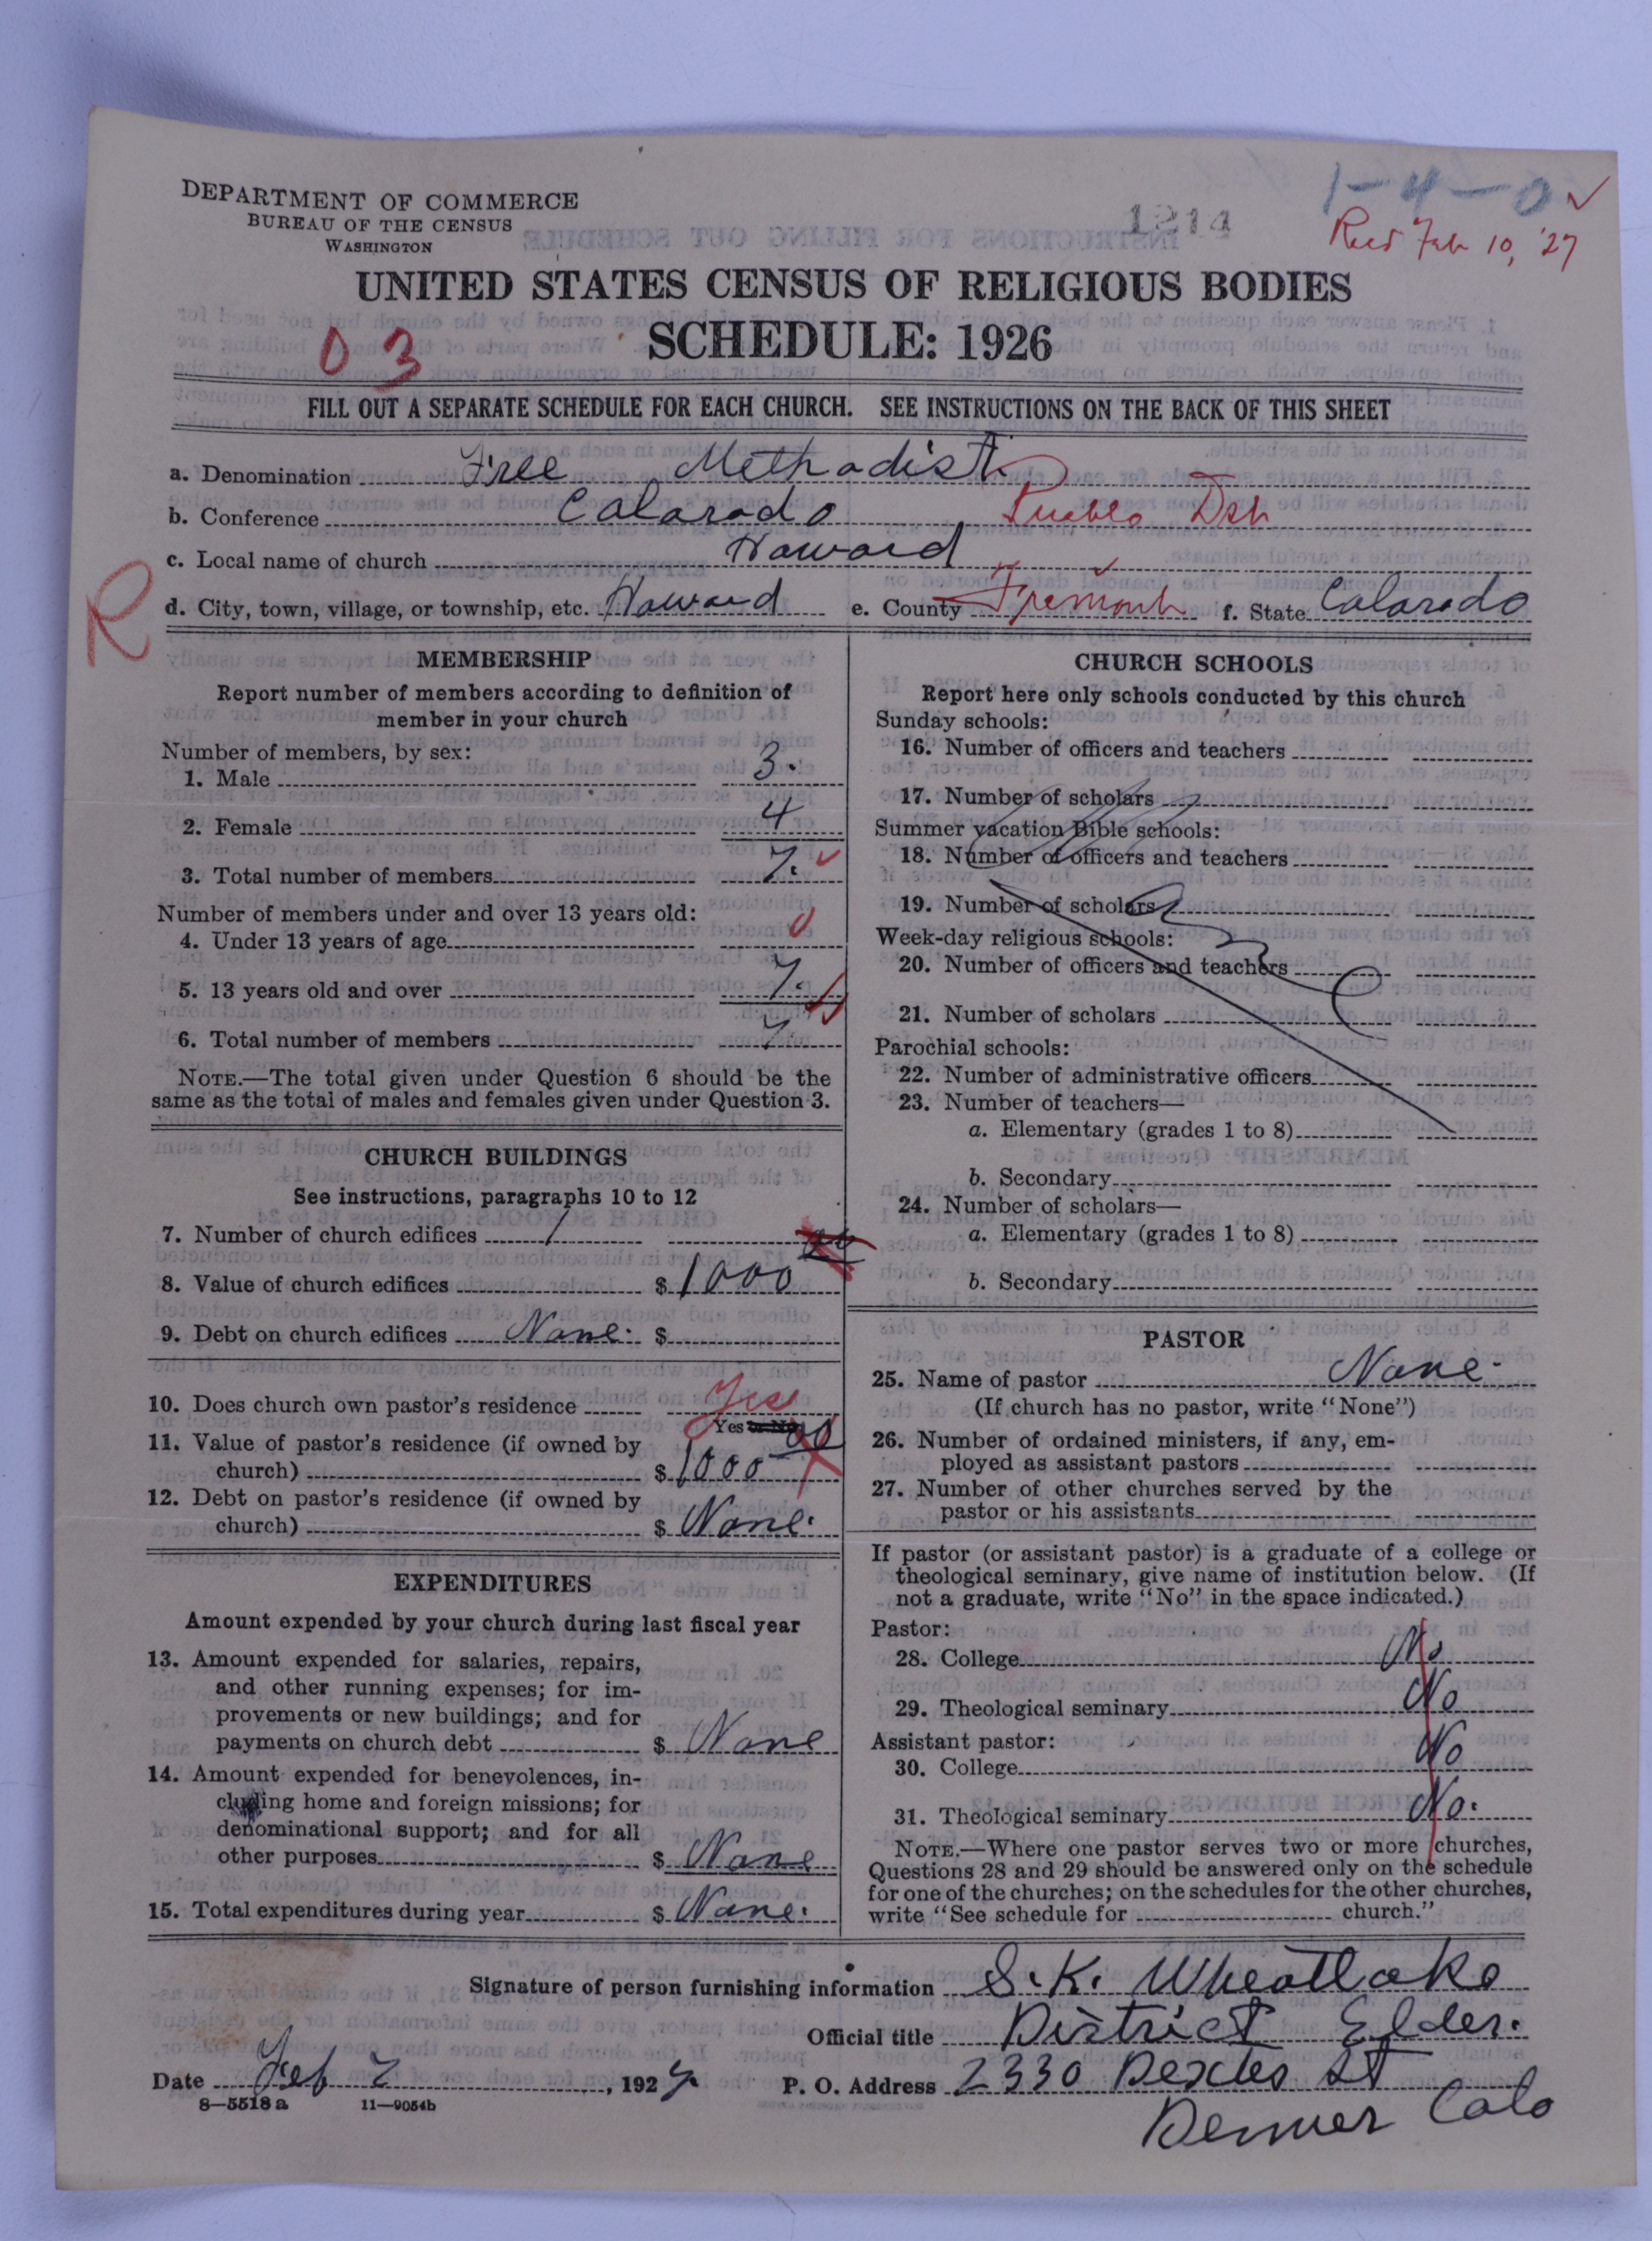 DEPARTMENT OF COMMERCE
BUREAU OF THE CENSUS
WASHINGTON
1214
1-4-0
Recd Feb 10, '27
UNITED STATES CENSUS OF RELIGIOUS BODIES
SCHEDULE: 1926
03
FILL OUT A SEPARATE SCHEDULE FOR EACH CHURCH. SEE INSTRUCTIONS ON THE BACK OF THIS SHEET
a. Denomination Free Methodist
b. Conference Colorado Pueblo Dst
c. Local name of church Howard
R
d. City, town, village, or township, etc. Howard e. County Fremont f. State Colorado
MEMBERSHIP
Report number of members according to definition of
member in your church
Number of members, by sex:
1. Male 3.
2. Female 4
3. Total number of members 7.
Number of members under and over 13 years old:
4. Under 13 years of age 0
5. 13 years old and over 7.
6. Total number of members 7
NOTE.—The total given under Question 6 should be the
same as the total of males and females given under Question 3.
CHURCH BUILDINGS
See instructions, paragraphs 10 to 12
7. Number of church edifices 1
8. Value of church edifices $ 1000 00
9. Debt on church edifices None. $
10. Does church own pastor's residence Yes
Yes or No
11. Value of pastor's residence (if owned by
church) $ 1000 00
12. Debt on pastor's residence (if owned by
church) $ None.
EXPENDITURES
Amount expended by your church during last fiscal year
13. Amount expended for salaries, repairs,
and other running expenses; for im-
provements or new buildings; and for
payments on church debt $ None
14. Amount expended for benevolences, in-
cluding home and foreign missions; for
denominational support; and for all
other purposes $ None
15. Total expenditures during year $ None.
CHURCH SCHOOLS
Report here only schools conducted by this church
Sunday schools:
16. Number of officers and teachers
17. Number of scholars
Summer vacation Bible schools:
18. Number of officers and teachers
19. Number of scholars
Week-day religious schools:
20. Number of officers and teachers
21. Number of scholars
Parochial schools:
22. Number of administrative officers
23. Number of teachers—
a. Elementary (grades 1 to 8)
b. Secondary
24. Number of scholars—
a. Elementary (grades 1 to 8)
b. Secondary
PASTOR
25. Name of pastor None.
(If church has no pastor, write "None")
26. Number of ordained ministers, if any, em-
ployed as assistant pastors
27. Number of other churches served by the
pastor or his assistants
If pastor (or assistant pastor) is a graduate of a college or
theological seminary, give name of institution below. (If
not a graduate, write "No" in the space indicated.)
Pastor:
28. College No
29. Theological seminary No
Assistant pastor:
30. College No
31. Theological seminary No.
NOTE.—Where one pastor serves two or more churches,
Questions 28 and 29 should be answered only on the schedule
for one of the churches; on the schedules for the other churches,
write "See schedule for church."
Signature of person furnishing information S. K. Wheatlake
Official title District Elder.
Date Feb 2, 1927. P. O. Address 2330 Dexter St
8—5518a 11—9054b
Denver Colo